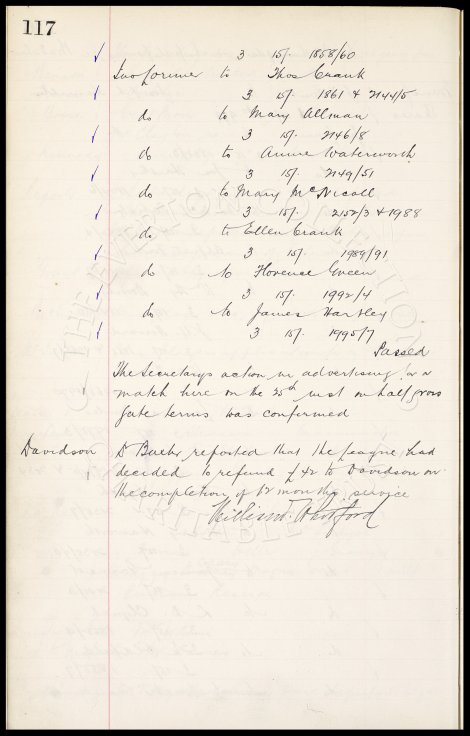 117
3 15/- 1858/60
Ino Cormer to Thos Crank
3 15/- 1861 & 2144/5
do to Mary Allman
3 15/- 2146/8
do to Annie Waterworth
3 15/- 2149/51
do to Mary McNicoll
3 15/- 2152/3 & 1988
do to Ellen Crank
3 15/- 1989/91
do to Florence Green
3 15/- 1992/4
do to James Hartley
3 15/- 1995/7
Passed
The Secretarys action in advertising for a
match here on the 25th inst on half gross
gate terms was confirmed
Davidson Dr Baxter reported that the league had
decided to refund £42 to Davidson on
the completion of 12 months service
William Whitford